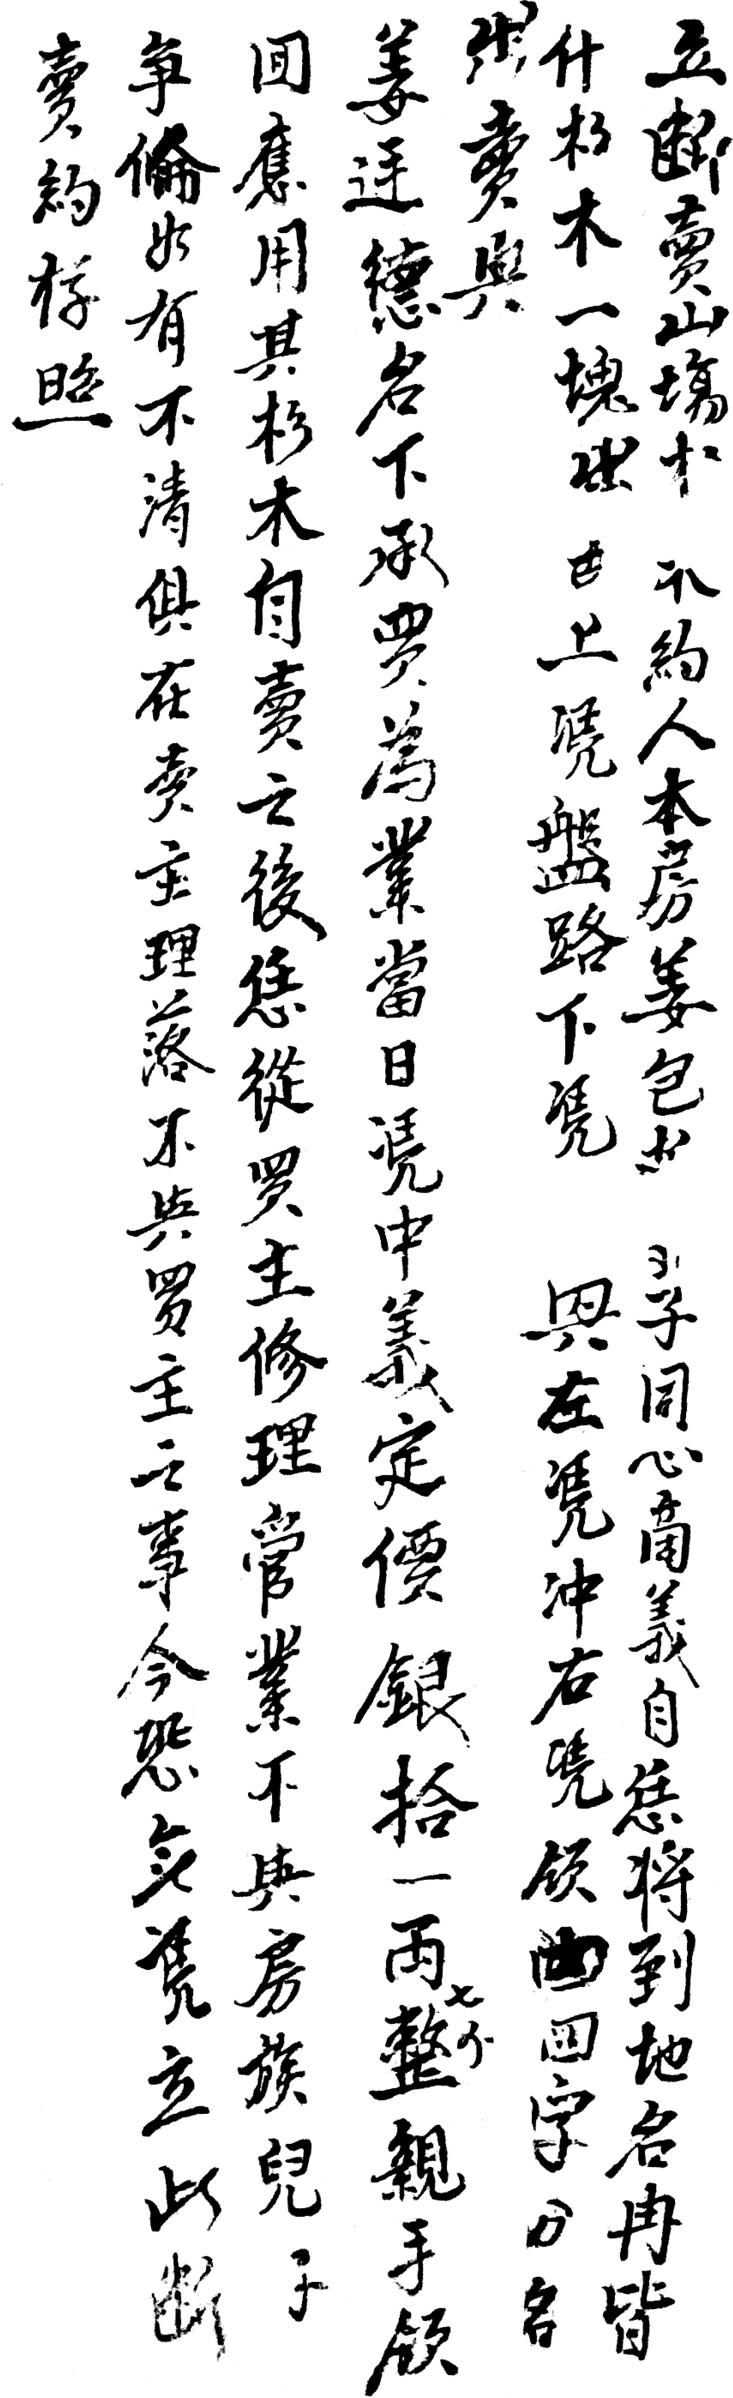 立断賣山塲杉木約人本房姜包
子同心商義自恁将到地名冉皆
什杉木一塊 上凴盤路下凴
與左凴冲右凴領四字分名
出賣與
姜廷德名下承買為業當日凴中義定價銀拾一两七分整親手領
回應用其杉木自賣之後恁從買主修理管業不與房族兒子
争倫如有不清俱在賣主理落不與買主之事今恐無凴立此断
賣約存照